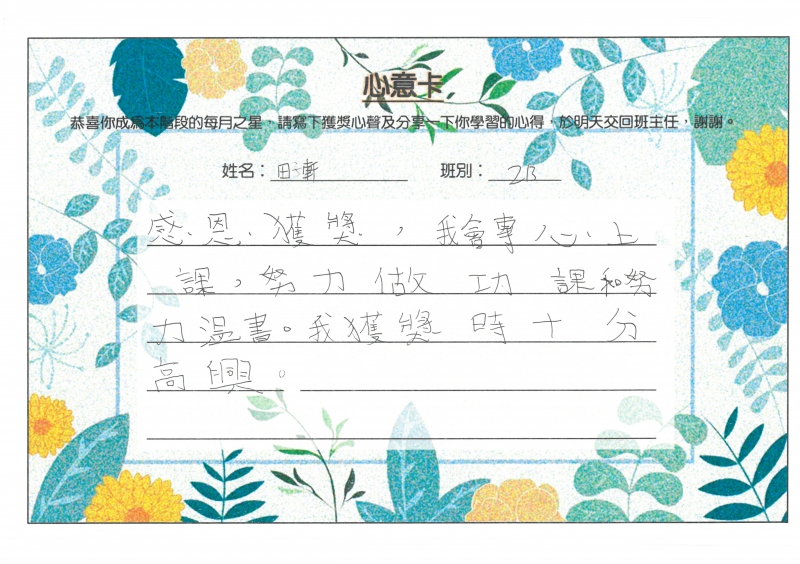 心意卡
恭喜你成為本階段的每月之星,請寫下獲獎心聲及分享一下你學習的心得,於明天交回班主任,謝謝。
姓名:田子漸 班別:2B
感恩獲獎,我會專心上
課,努力做功課和努
力溫書。我獲獎時十分
高興。